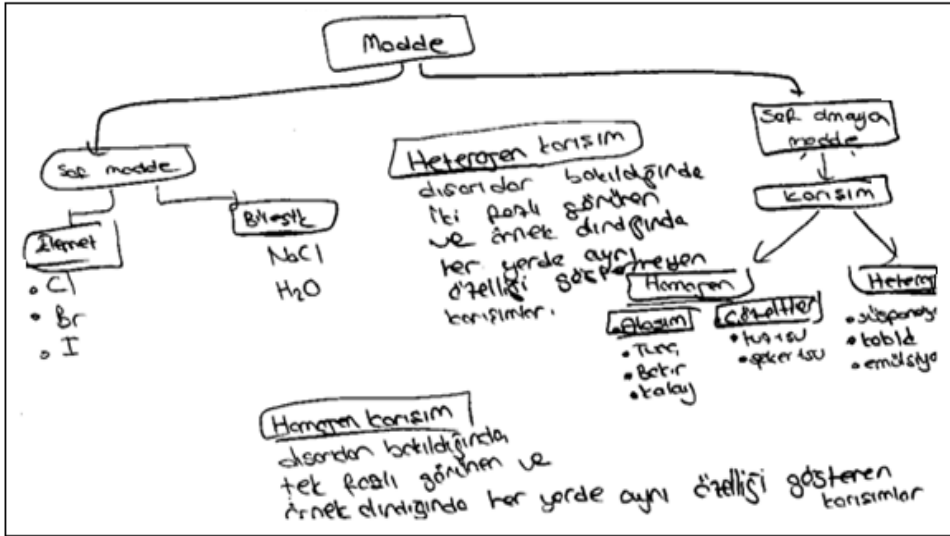 Madde
Saf madde
Saf olmayan
madde
Element
• Cl
• Br
• I
Bileşik
NaCl
H₂O
Heterojen karışım
dışarıdan bakıldığında
iki fazlı görünen
ve örnek alındığında
her yerde aynı
özelliği göstermeyen
karışımlar.
Karışım
Homojen
Alaşım
• Tunç
• Bakır
• Kalay
Çözeltiler
• tuz+su
• şeker+su
Heteroj
• süspansiy
• koloid
• emülsiyo
Homojen karışım
dışarıdan bakıldığında
tek fazlı görünen ve
örnek alındığında her yerde aynı özelliği gösteren
karışımlar